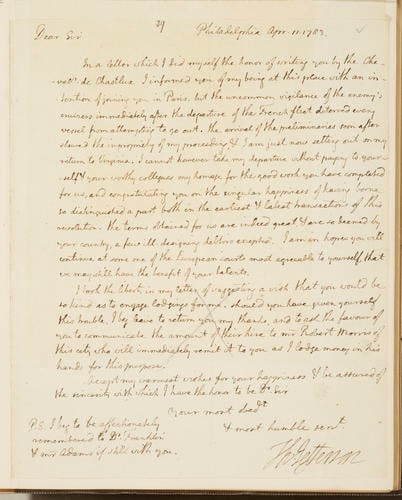 29
Dear Sir Philadelphia Apr. 11. 1783.
In a letter which I did myself the honor of writing you by the Che-
valr. de Chastlux I informed you of my being at this place with an in-
tention of joining you in Paris. but the uncommon vigilance of the enemy's
cruisers immediately after the departure of the French fleet deterred every
vessel from attempting to go out. the arrival of the preliminaries soon after
shewed the impropriety of my proceeding, & I am just now setting out on my
return to Virginia. I cannot however take my departure without paying to your-
self & your worthy collegues my homage for the good work you have completed
for us, and congratulating you on the singular happiness of having borne
so distinguished a part both in the earliest & latest transactions of this
revolution. the terms obtained for us are indeed great, & are so deemed by
your country, a few ill designing debtors excepted. I am in hopes you will
continue at some one of the European courts most agreeable to yourself, that
we may still have the benefit of your talents.
I took the liberty in my letter of suggesting a wish that you would be
so kind as to engage lodgings for me. should you have given yourself
this trouble, I beg leave to return you my thanks, and to ask the favour of
you to communicate the amount of their hire to mr Robert Morris of
this city who will immediately remit it to you as I lodge money in his
hands for this purpose.
Accept my warmest wishes for your happiness & be assured of
the sincerity with which I have the honor to be Dr. Sir
Your most obedt.
P.S. I beg to be affectionately & most humble servt.
remembered to Dr. Franklin
& mr Adams if still with you. Th: Jefferson